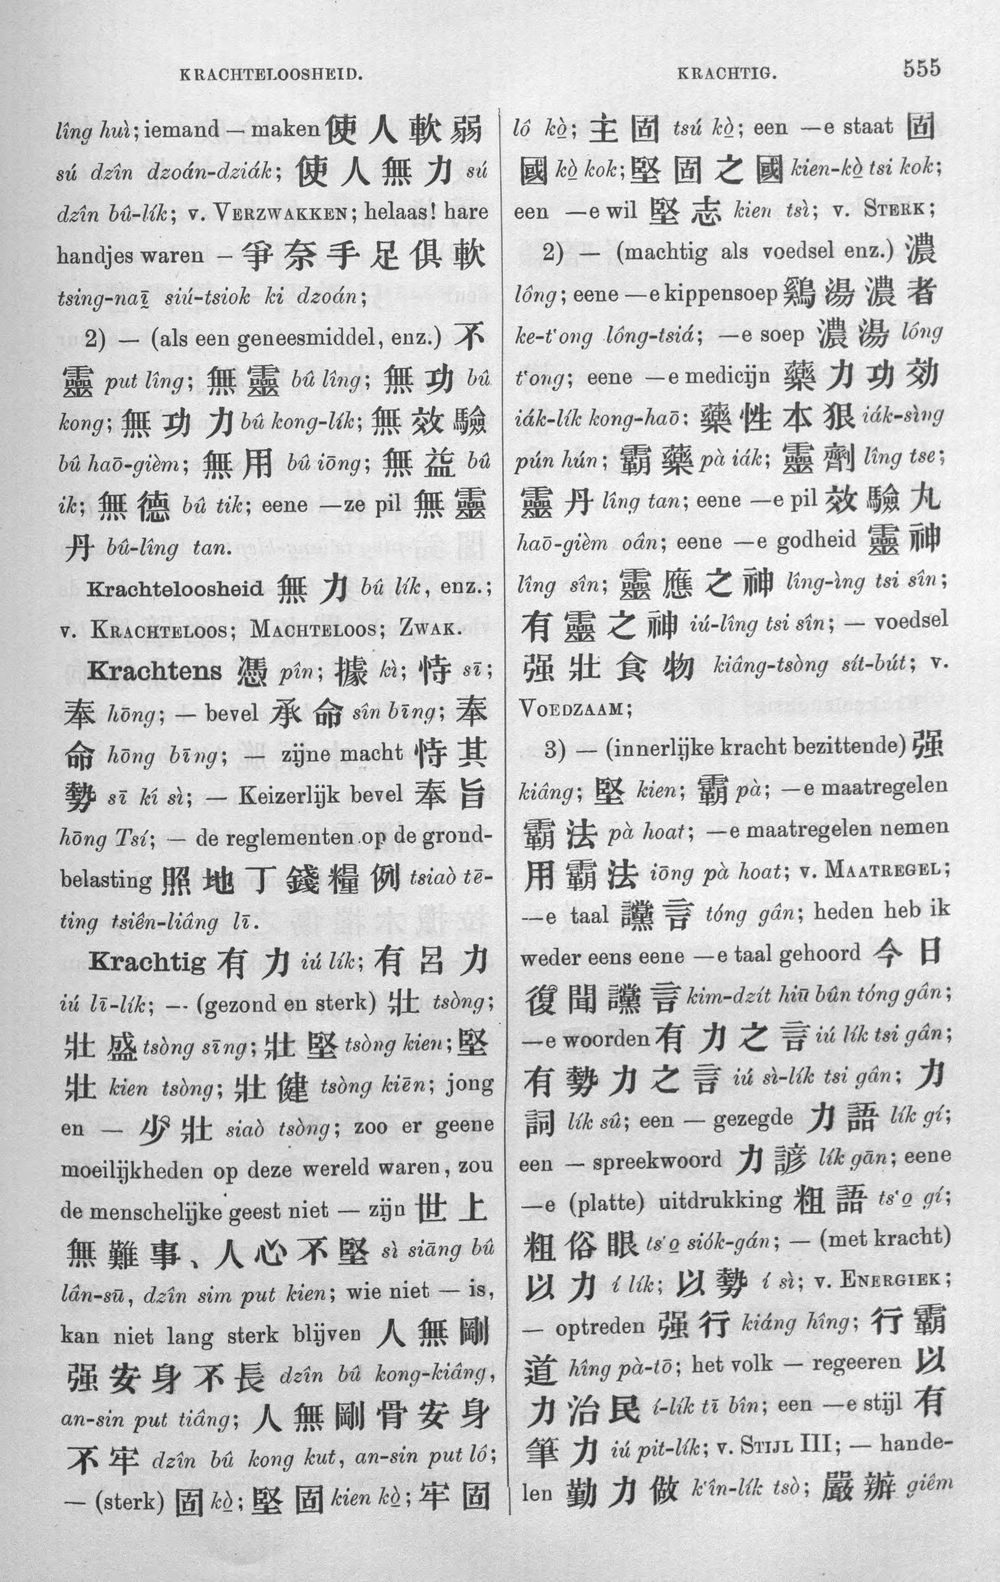 KRACHTELOOSHEID.
KRACHTIG.
555
lîng huì; iemand — maken 使人軟弱
sú dzîn dzoán-dziák; 使人無力 sú
dzîn bû-lík; v. VERZWAKKEN; helaas! hare
handjes waren — 爭奈手足俱軟
tsing-naī siú-tsiok ki dzoán;
2) — (als een geneesmiddel, enz.) 不
靈 put lîng; 無靈 bû lîng; 無功 bû
kong; 無功力 bû kong-lík; 無效驗
bû haō-gièm; 無用 bû iōng; 無益 bû
ik; 無德 bû tik; eene —ze pil 無靈
丹 bû-lîng tan.
Krachteloosheid 無力 bû lík, enz.;
v. KRACHTELOOS; MACHTELOOS; ZWAK.
Krachtens 憑 pîn; 據 kì; 恃 sī;
奉 hōng; — bevel 承命 sîn bīng; 奉
命 hōng bīng; — zijne macht 恃其
勢 sī kí sì; — Keizerlijk bevel 奉旨
hōng Tsí; — de reglementen op de grond-
belasting 照地丁錢糧例 tsiaò tē-
ting tsiên-liâng lī.
Krachtig 有力 iú lík; 有呂力
iú lī-lík; — (gezond en sterk) 壯 tsòng;
壯盛 tsòng sīng; 壯堅 tsòng kien; 堅
壯 kien tsòng; 壯健 tsòng kiēn; jong
en — 少壯 siaò tsòng; zoo er geene
moeilijkheden op deze wereld waren, zou
de menschelijke geest niet — zijn 世上
無難事、人心不堅 sì siāng bû
lân-sū, dzîn sim put kien; wie niet — is,
kan niet lang sterk blijven 人無剛
强安身不長 dzîn bû kong-kiâng,
an-sin put tiâng; 人無剛骨安身
不牢 dzîn bû kong kut, an-sin put lô;
— (sterk) 固 kò; 堅固 kien kò; 牢固
lô kò; 主固 tsú kò; een —e staat 固
國 kò kok; 堅固之國 kien-kò tsi kok;
een —e wil 堅志 kien tsì; v. STERK;
2) — (machtig als voedsel enz.) 濃
lông; eene —e kippensoep 鷄湯濃者
ke-t'ong lông-tsiá; —e soep 濃湯 lông
t'ong; eene —e medicijn 藥力功効
iák-lík kong-haō; 藥性本狠 iák-sìng
pún hún; 霸藥 pà iák; 靈劑 lîng tse;
靈丹 lîng tan; eene —e pil 效驗丸
haō-gièm oân; eene —e godheid 靈神
lîng sîn; 靈應之神 lîng-ìng tsi sîn;
有靈之神 iú-lîng tsi sîn; — voedsel
强壯食物 kiâng-tsòng sít-bút; v.
VOEDZAAM;
3) — (innerlijke kracht bezittende) 强
kiâng; 堅 kien; 霸 pà; —e maatregelen
霸法 pà hoat; —e maatregelen nemen
用霸法 iōng pà hoat; v. MAATREGEL;
—e taal 讜言 tóng gân; heden heb ik
weder eens eene —e taal gehoord 今日
復聞讜言 kim-dzít hiū bûn tóng gân;
—e woorden 有力之言 iú lík tsi gân;
有勢力之言 iú sì-lík tsi gân; 力
詞 lík sû; een — gezegde 力語 lík gí;
een — spreekwoord 力諺 lík gān; eene
—e (platte) uitdrukking 粗語 ts'o gí;
粗俗眼 ts'o siók-gán; — (met kracht)
以力 í lík; 以勢 í sì; v. ENERGIEK;
— optreden 强行 kiáng hîng; 行霸
道 hîng pà-tō; het volk — regeeren 以
力治民 í-lík tī bîn; een —e stijl 有
筆力 iú pit-lík; v. STIJL III; — hande-
len 勤力做 k'în-lík tsò; 嚴辦 giêm